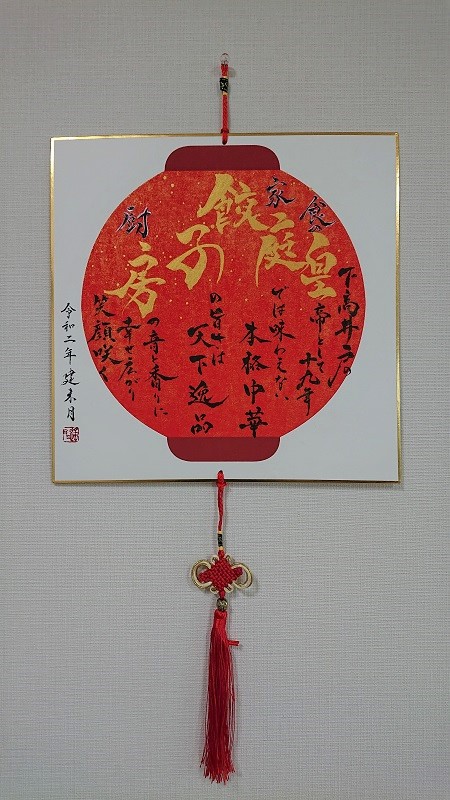 下高井戸の
食の皇帝として十九年
家庭では味わえない
本格中華
餃子の旨さは
天下逸品
厨房の音と香りに
幸せ広がり
笑顔咲く
令和二年 建未月